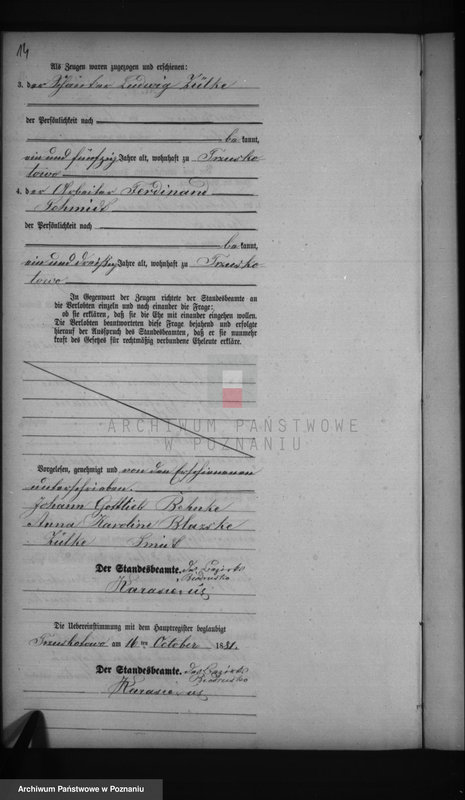 14
Als Zeugen waren zugezogen und erschienen:
3. der Ludwig Zülke
der Persönlichkeit nach
bekannt,
ein und fünfzig Jahre alt, wohnhaft zu
4. der Arbeiter Ferdinand
Schmidt
der Persönlichkeit nach
bekannt,
ein und dreißig Jahre alt, wohnhaft zu
In Gegenwart der Zeugen richtete der Standesbeamte an
die Verlobten einzeln und nach einander die Frage:
ob sie erklären, daß sie die Ehe mit einander eingehen wollen.
Die Verlobten beantworteten diese Frage bejahend und erfolgte
hierauf der Ausspruch des Standesbeamten, daß er sie nunmehr
kraft des Gesetzes für rechtmäßig verbundene Eheleute erkläre.
ARCHIWUM PAŃSTWOWE
W POZNANIU
Vorgelesen, genehmigt und von den Erschienenen
unterschrieben.
Johann Gottlieb
Anna Karoline
Zülke
Der Standesbeamte.
Die Uebereinstimmung mit dem Hauptregister beglaubigt
am 16 ten October 1881.
Der Standesbeamte.
Archiwum Państwowe w Poznaniu